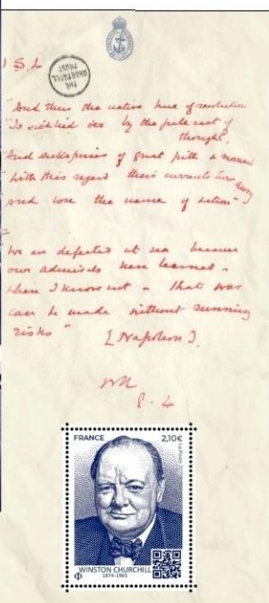 1 S.L
THE
CHARTWELL
TRUST
"And thus the native hue of resolution
"Is sicklied o'er by the pale cast of
thought,
And enterprises of great pith & moment
With this regard their currents turn awry
And lose the name of action"
We are defeated at sea because
our admirals have learned -
where I know not - that war
can be made without running
risks"
[Napoleon].
8.4
FRANCE
2,10€
La Poste
WINSTON CHURCHILL
1874-1965